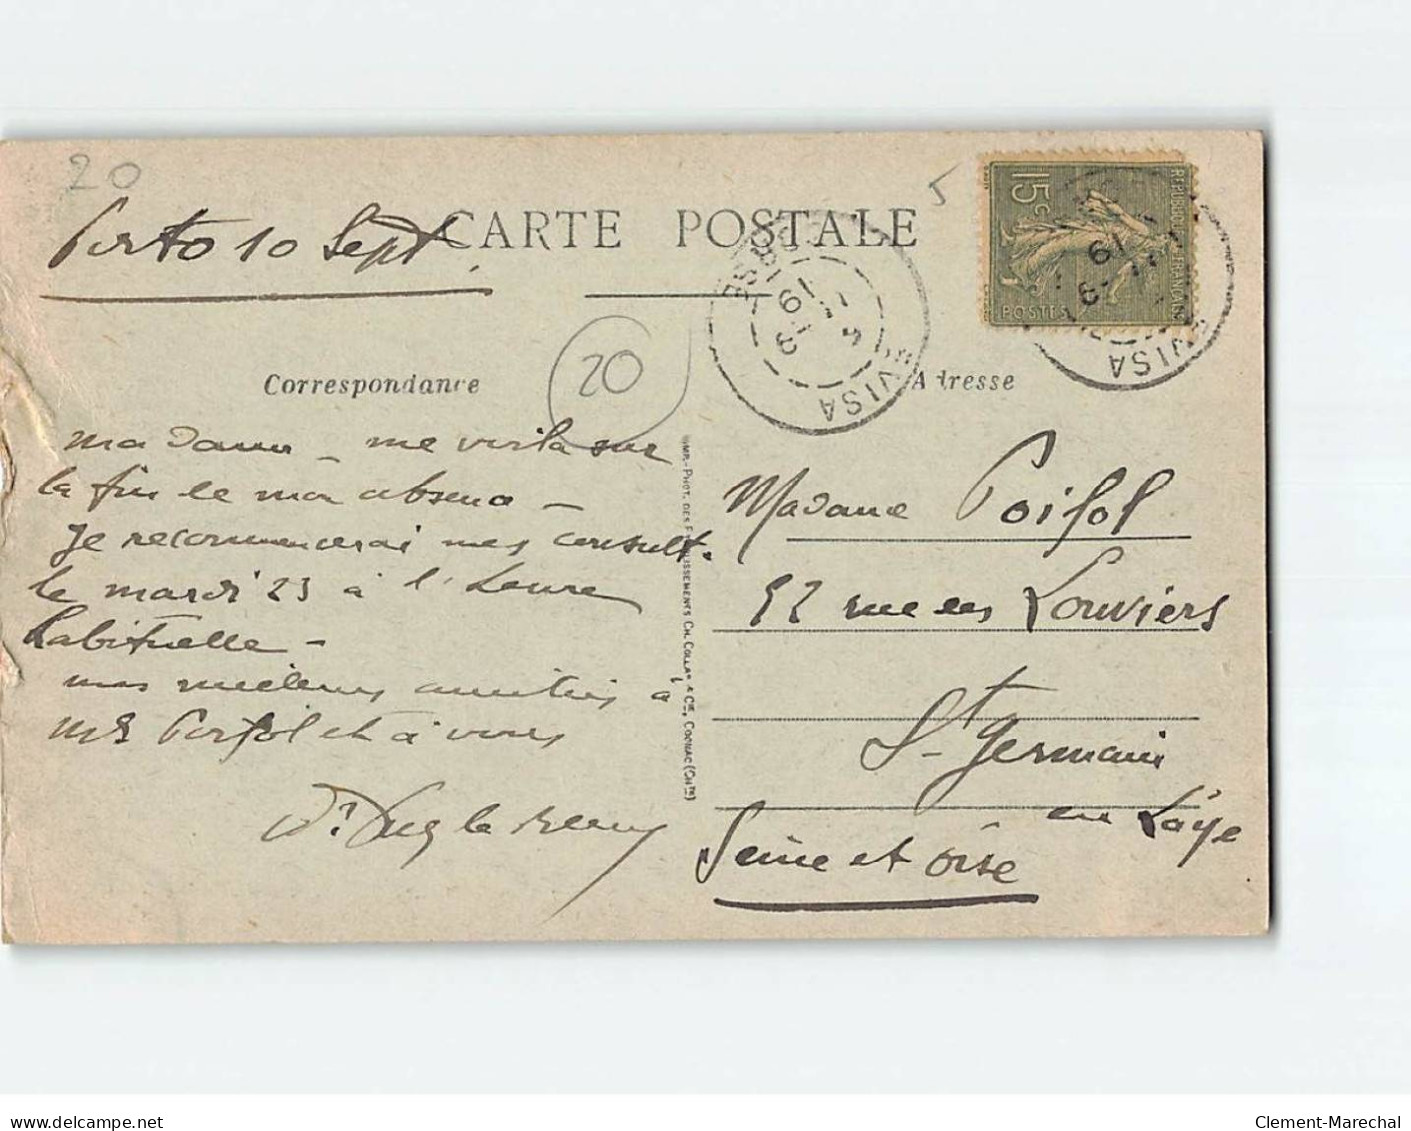 20
5
Porto 10 Sept.
CARTE POSTALE
15c
REPUBLIQUE FRANÇAISE
POSTES
EVISA
CORSE
19
EVISA
19
20
Correspondance
Adresse
Madame - me voilà sur
la fin de mon absence -
Je recommencerai mes consult.
le mardi 23 à l'heure
habituelle -
mes meilleures amitiés à
Mr Poifol et à vous
Dr
IMP.-PHOT. DES ETABLISSEMENTS CH. COLLAS & Cie, COGNAC (Chte)
Madame Poifol
52 rue des Louviers
St Germain
en Laye
Seine et Oise
delcampe.net
Clement-Marechal